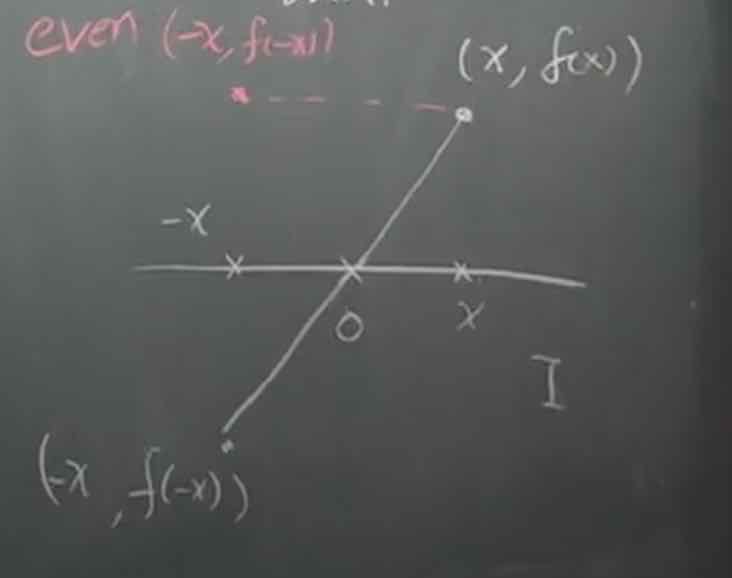 even (-x, f(-x))
(x, f(x))
-x
0
x
I
(-x, f(-x))